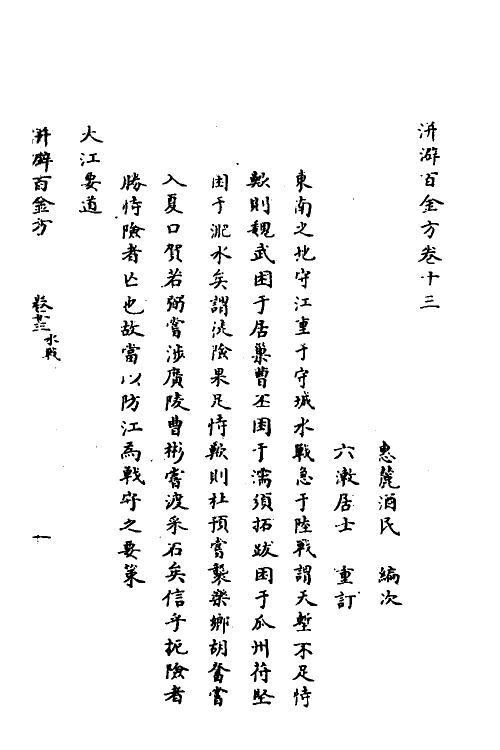 洴澼百金方卷十三
惠麓酒民 編次
六漱居士 重訂
東南之地守江重于守城水戰急于陸戰謂天塹不足恃
歟則魏武困于居巢曹丕困于濡須拓跋困于瓜州苻堅
困于淝水矣謂決險果足恃歟則杜預嘗襲樂鄉胡奮嘗
入夏口賀若弼嘗涉廣陵曹彬嘗渡采石矣信乎扼險者
勝恃險者亡也故當以防江為戰守之要策
大江要道
洴澼百金方 卷十三 水戰 一